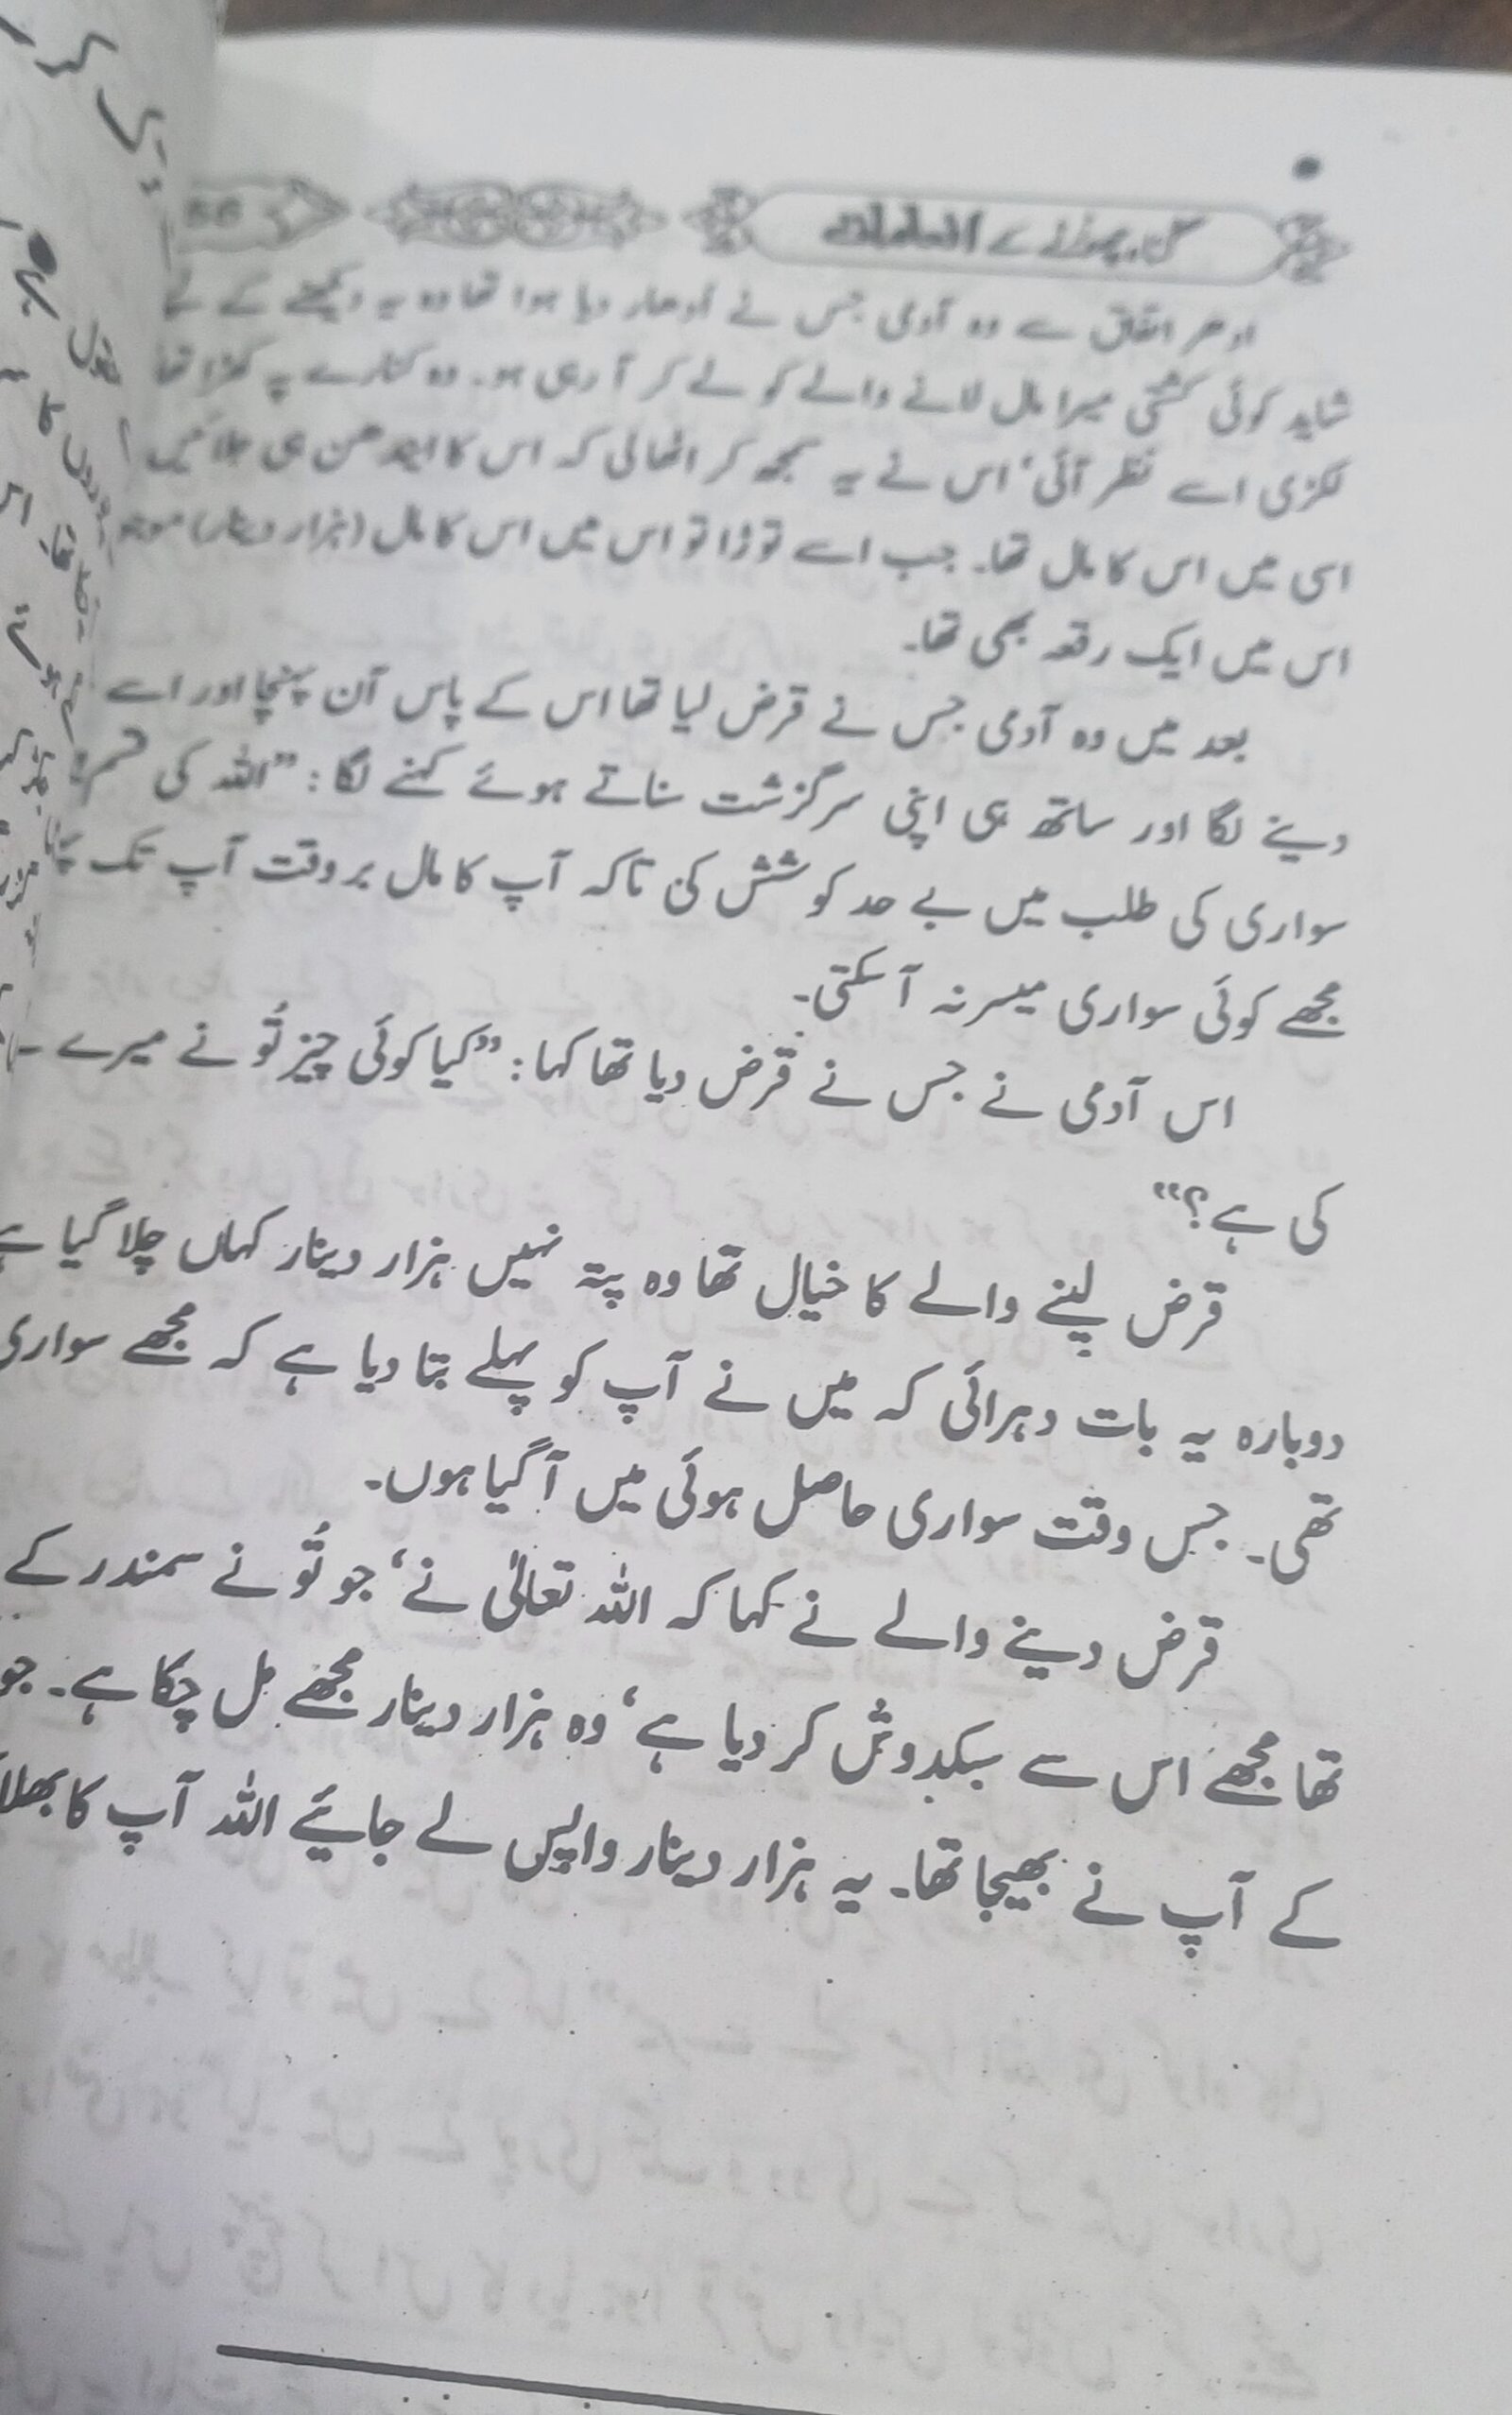 گناہ چھوڑنے کے انعامات
ادھر اتفاق سے وہ آدمی جس نے ادھار دیا ہوا تھا وہ یہ دیکھنے کے لئے
شاید کوئی کشتی میرا مال لانے والے کو لے کر آ رہی ہو۔ وہ کنارے پہ کھڑا تھا
لکڑی اسے نظر آئی، اس نے یہ سمجھ کر اٹھا لی کہ اس کا ایندھن ہی جلائیں
اسی میں اس کا مال تھا۔ جب اسے توڑا تو اس میں اس کا مال (ہزار دینار)
اس میں ایک رقعہ بھی تھا۔
بعد میں وہ آدمی جس نے قرض لیا تھا اس کے پاس آن پہنچا اور اسے
دینے لگا اور ساتھ ہی اپنی سرگزشت سناتے ہوئے کہنے لگا: ”اللہ کی
سواری کی طلب میں بے حد کوشش کی تاکہ آپ کا مال بروقت آپ تک
مجھے کوئی سواری میسر نہ آ سکتی۔
اس آدمی نے جس نے قرض دیا تھا کہا: ”کیا کوئی چیز تُو نے میرے
کی ہے؟“
قرض لینے والے کا خیال تھا وہ پتہ نہیں ہزار دینار کہاں چلا گیا ہے
دوبارہ یہ بات دہرائی کہ میں نے آپ کو پہلے بتا دیا ہے کہ مجھے سواری
تھی۔ جس وقت سواری حاصل ہوئی میں آ گیا ہوں۔
قرض دینے والے نے کہا کہ اللہ تعالیٰ نے، جو تُو نے سمندر کے
تھا مجھے اس سے سبکدوش کر دیا ہے، وہ ہزار دینار مجھے مل چکا ہے۔ جو
کے آپ نے بھیجا تھا۔ یہ ہزار دینار واپس لے جائیے اللہ آپ کا بھلا